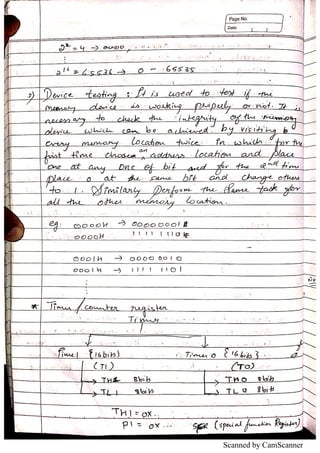 Page No.
Date
2² = 4 → 0000
2¹⁶ = 65536 → 0 - 65535
2) Device testing : It is used to test if the
memory device is working properly or not. It is
necessary to check the integrity of the memory
device which can be achieved by visiting
every memory location twice in which for the
first time choose an address location and place
one at any one of bit and for the 2nd time
place 0 at the same bit and change others
to 1. Similarly perform the same task for
all the other memory location.
eg: 0000H → 00000001
0000H 11111110
0001H → 00000010
0001H → 11111101
* Timer / counter register
Timer
Timer 1 {16 bits} Timer 0 {16 bits}
(T1) (T0)
→ TH1 8bits → TH0 8bits
→ TL1 8bits → TL0 8bits
TH1 = 0x..
P1 = 0x... SFR (special function Register)
Scanned by CamScanner